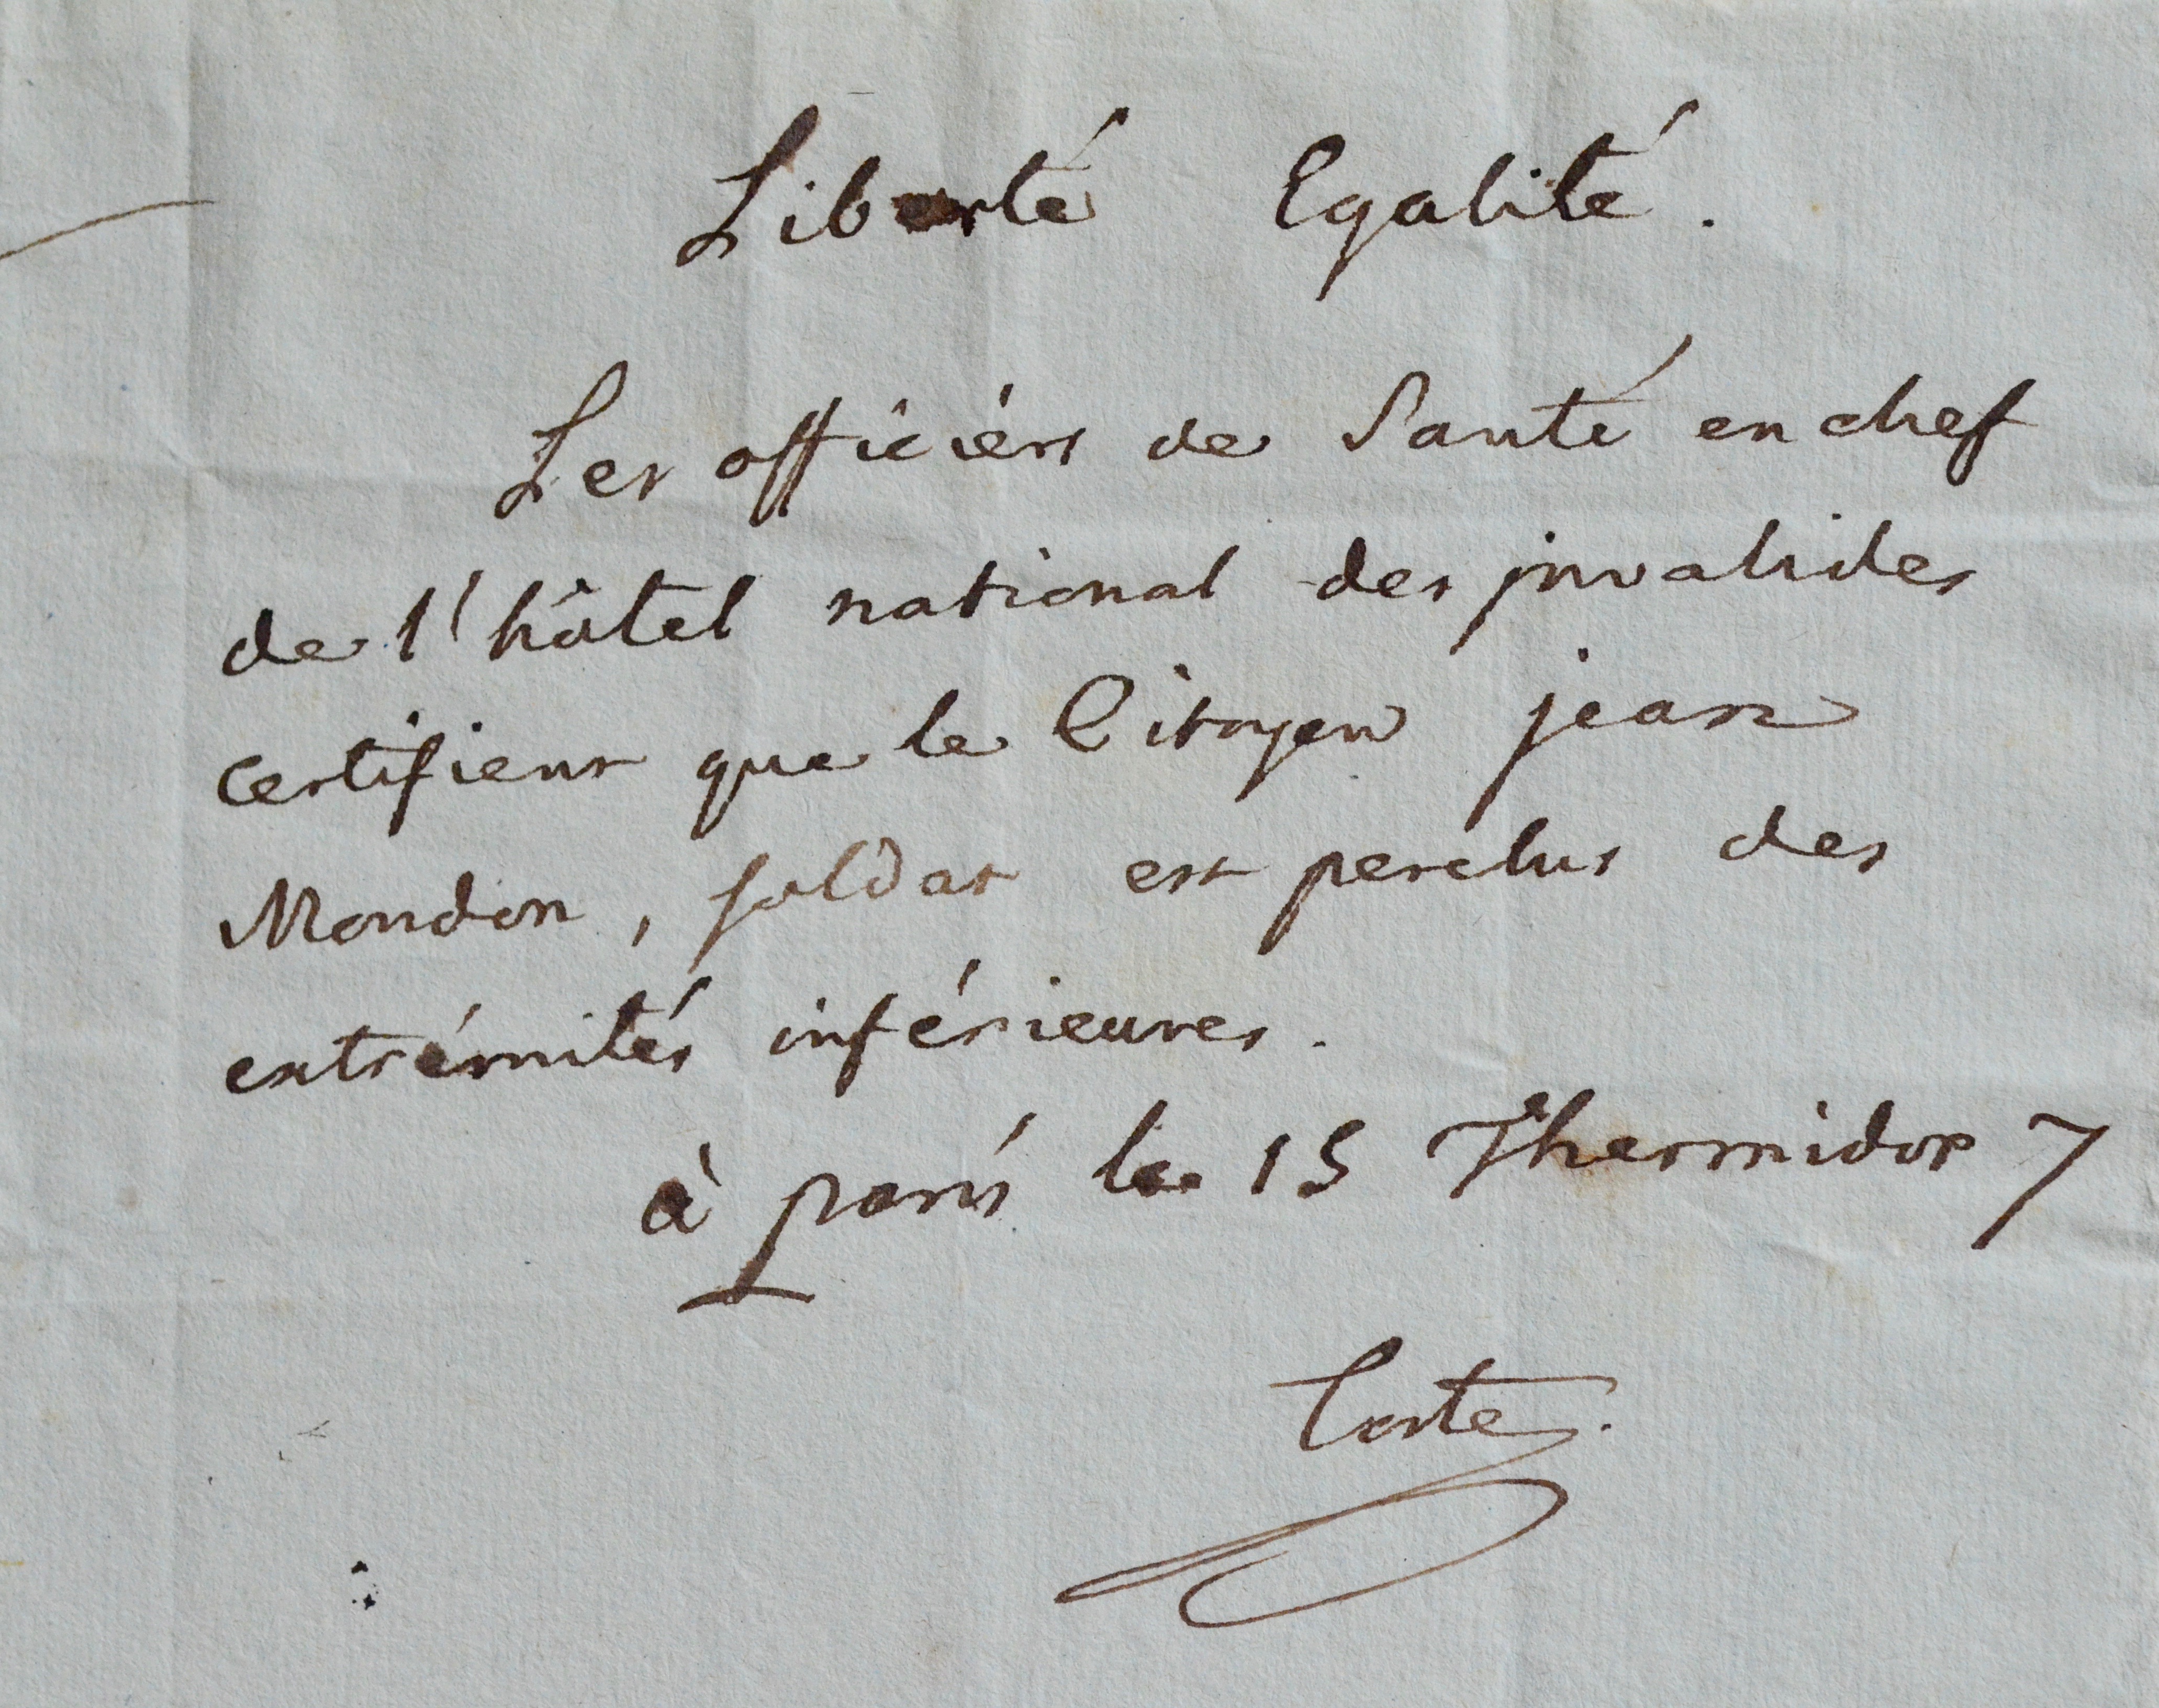 Liberté Egalité.
Les officiérs de Santé en chef
de l'hôtel national des jnvalides
certifient que le Citoyen jean
Mondon, soldat est perclus des
extrémités inférieures.
à paris le 15 Thermidor 7
Coste.